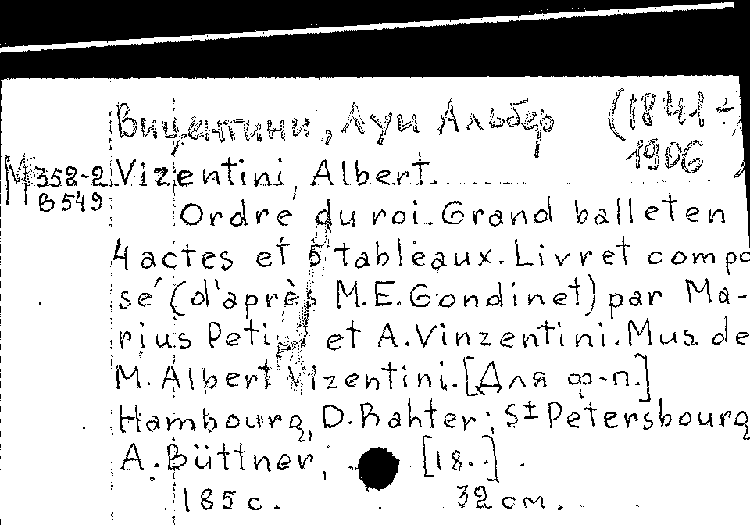 Вицентини, Луи Альбер (1841-
1906)
М 358-2 Vizentini, Albert.
В 549
Ordre du roi. Grand ballet en
4 actes et 5 tableaux. Livret compo
sé (d'après M.E. Gondinet) par Ma-
rius Petipa et A. Vinzentini. Mus. de
M. Albert Vizentini. [Для ф-п.]
Hambourg, D. Rahter; St Petersbourg
A. Büttner, [18..].
185 с. 32 см.